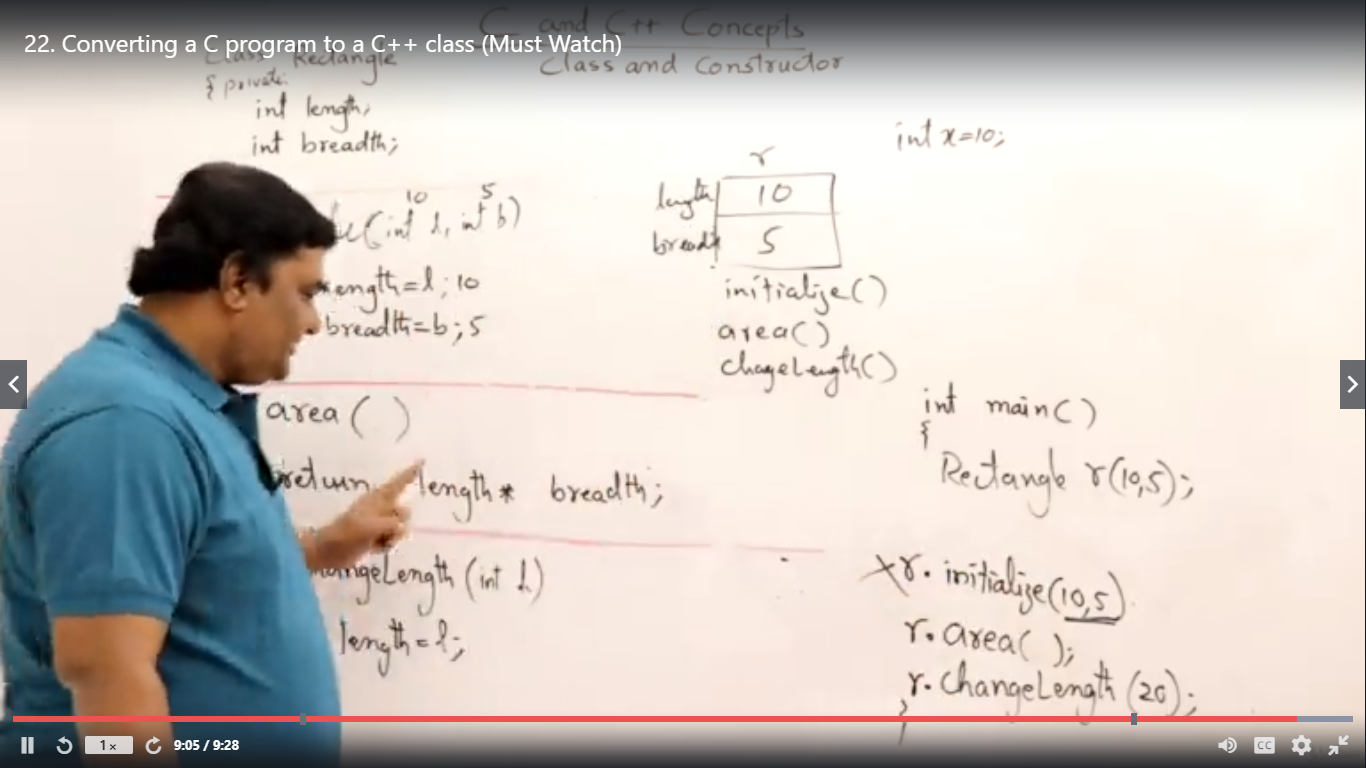 22. Converting a C program to a C++ class (Must Watch)
C and C++ Concepts
Class and Constructor
Class Rectangle
{ private:
int length;
int breadth;
10 5
(int l, int b)
length=l; 10
breadth=b; 5
area ( )
return length* breadth;
changeLength (int l)
length=l;
r
length 10
breadth 5
initialize()
area()
chageLength()
int x=10;
int main()
{
Rectangle r(10,5);
r. initialize(10,5)
r. area( );
r. changeLength (20);
}
1x
9:05 / 9:28
CC